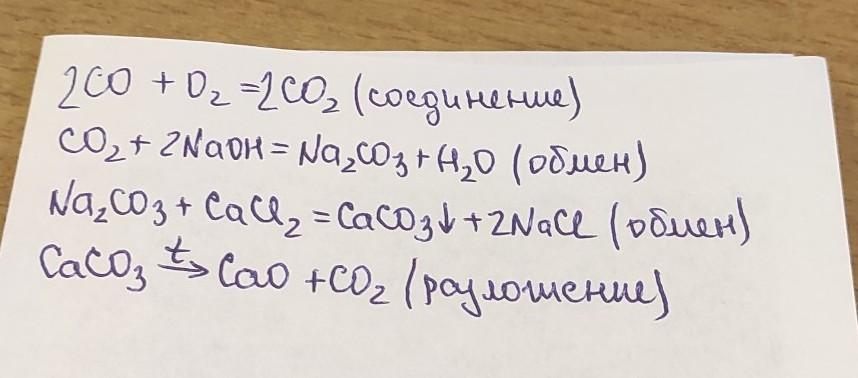 2CO + O₂ =2CO₂ (соединение)
CO₂ + 2NaOH = Na₂CO₃ + H₂O (обмен)
Na₂CO₃ + CaCl₂ = CaCO₃↓ + 2NaCl (обмен)
CaCO₃ t→ CaO + CO₂ (разложение)